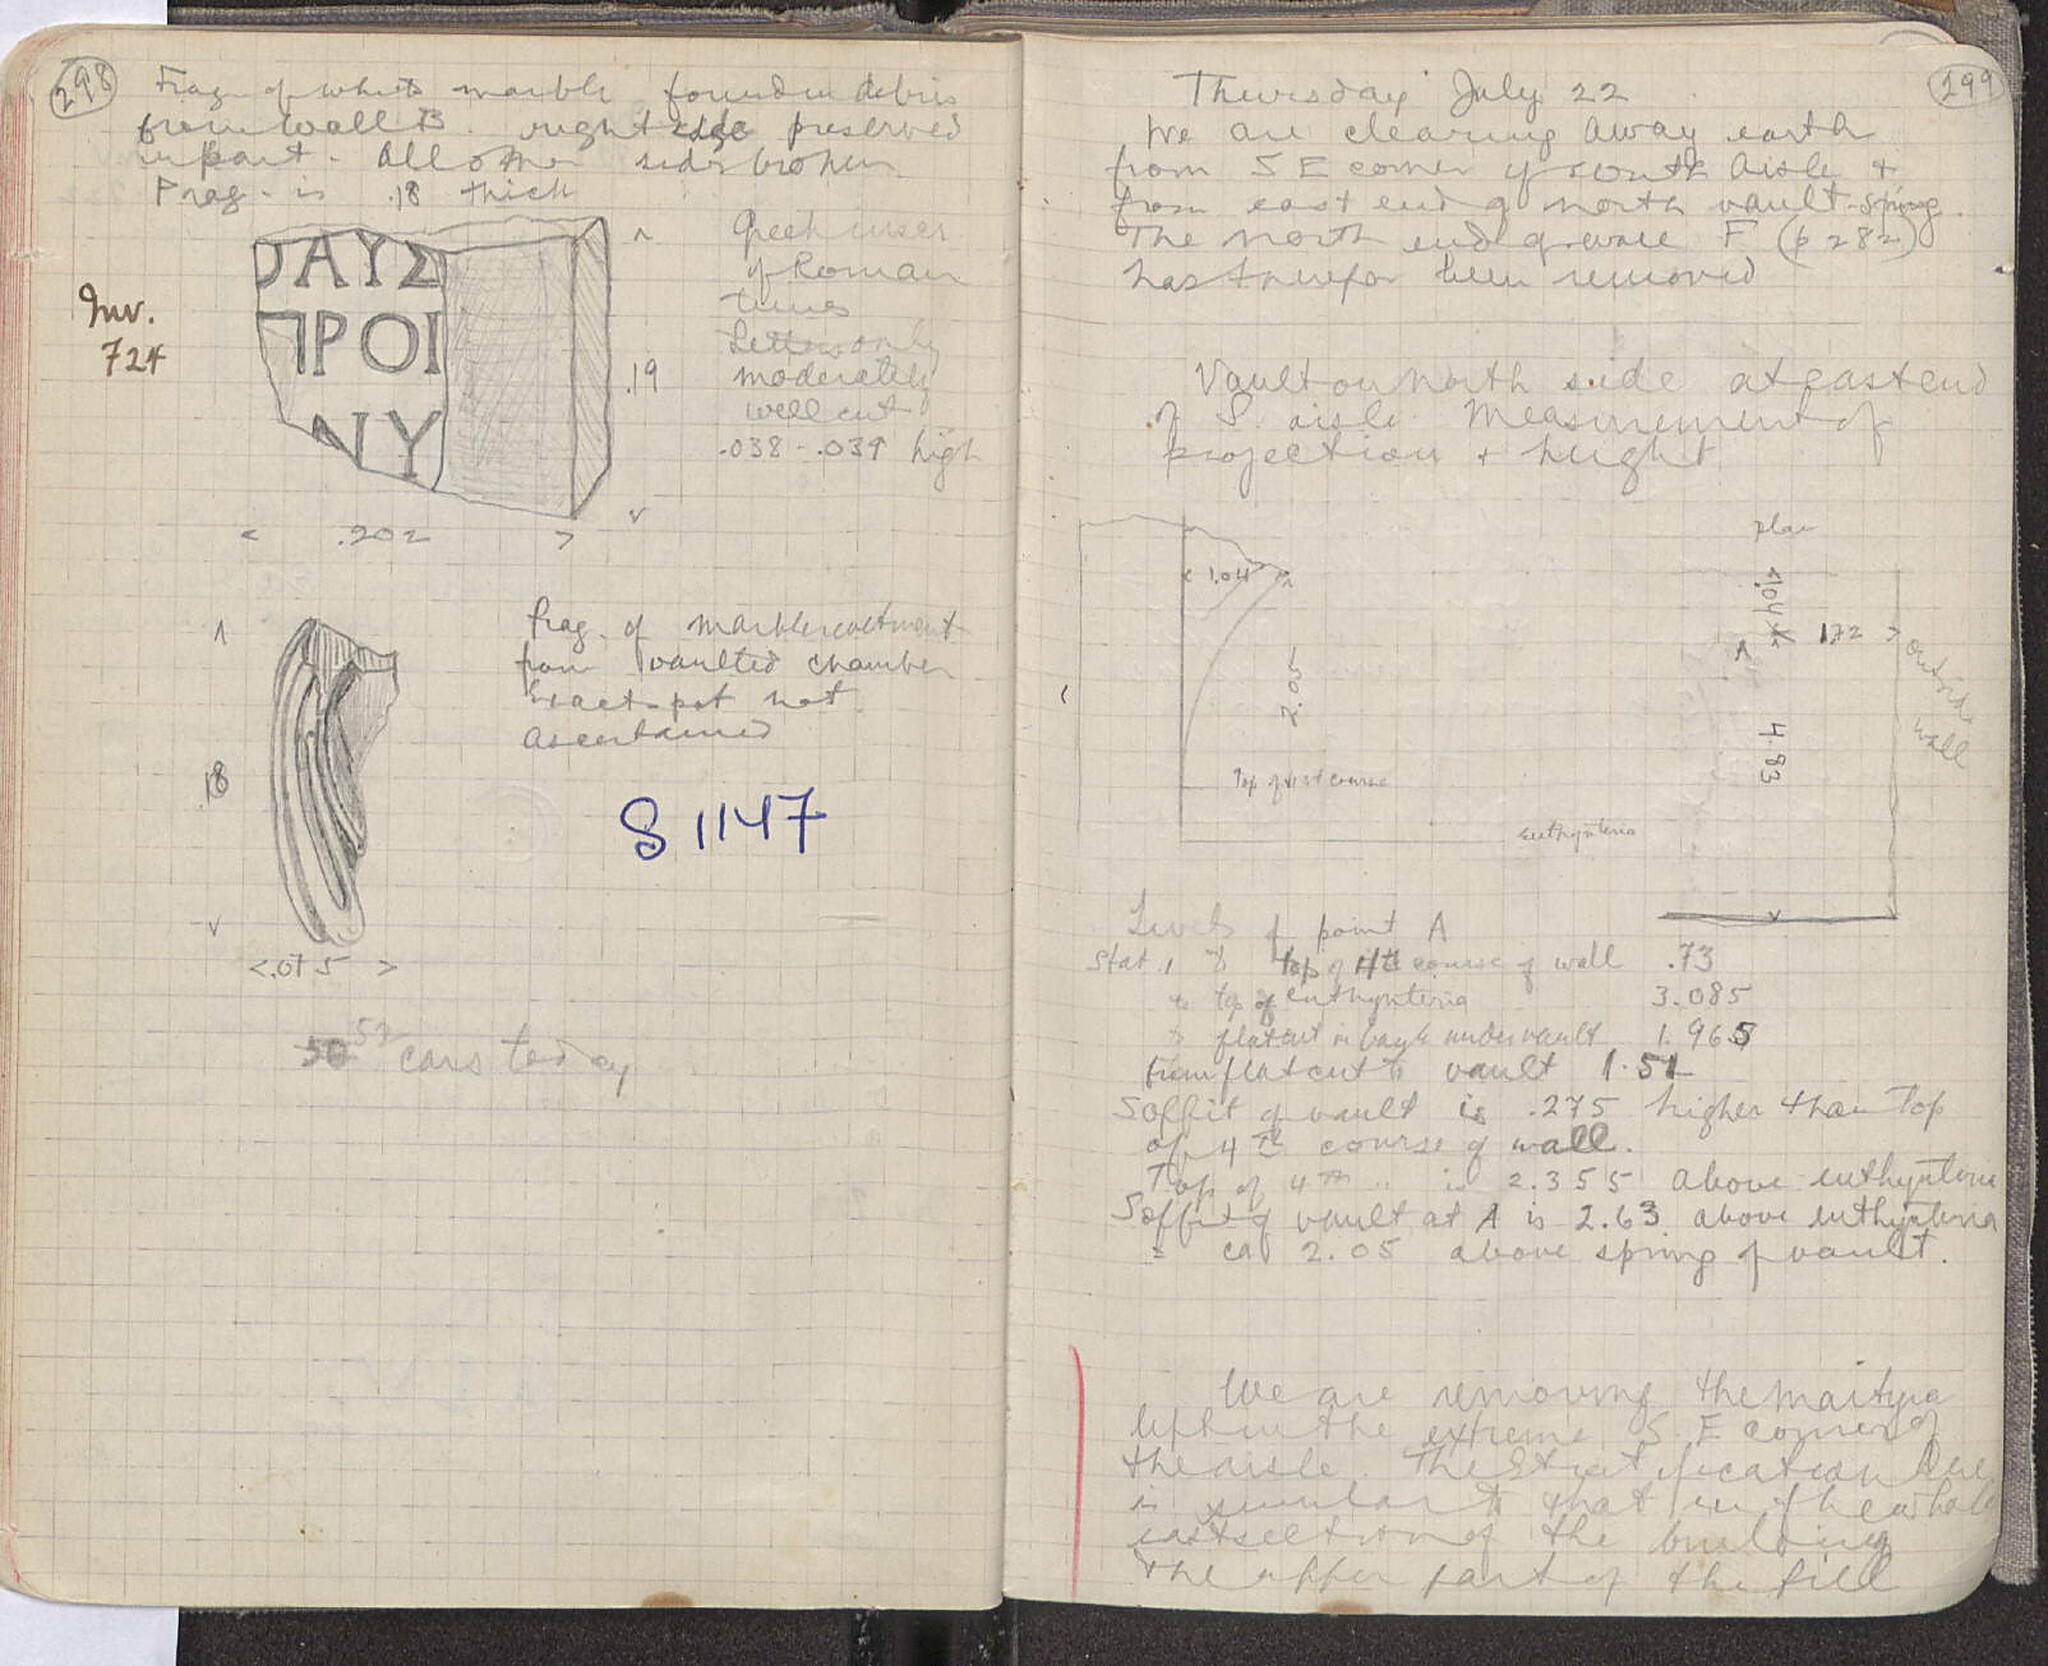 298
Frag. of white marble found in debris
from wall B. right edge preserved
in part. All other sides broken
Frag. is .18 thick
ΑΥΣ
ΠΡΟΙ
ΝΥ
Inv.
724
.19
.202
Greek inscr
of Roman
times
Letters only
moderately
well cut
.038 - .039 high
frag. of marble revetment
from vaulted chamber
Exact spot not
ascertained
.18
.075
S 1147
50 52 cars today
299
Thursday July 22
We are clearing away earth
from S E corner of south Aisle +
from east end of north vault-spring.
The north end of wall F (p 282)
has therefor been removed
Vault on north side at east end
of S. aisle. Measurement of
projection + height
1.04
2.05
Top of 1st course
euthynteria
plan
1.04
172
A
4.83
outside
wall
Levels of point A
Stat. 1 to top of 4th course of wall .73
to top of euthynteria 3.085
to flat cut in back under vault 1.965
from flat cut to vault 1.51
Soffit of vault is .275 higher than Top
of 4th course of wall.
Top of 4th " is 2.355 above euthynteria
Soffit of vault at A is 2.63 above euthynteria
= ca 2.05 above spring of vault.
We are removing the martyra
left in the extreme S. E corner of
the aisle. The Stratification here
is similar to that in the whole
east section of the building
The upper part of the fill